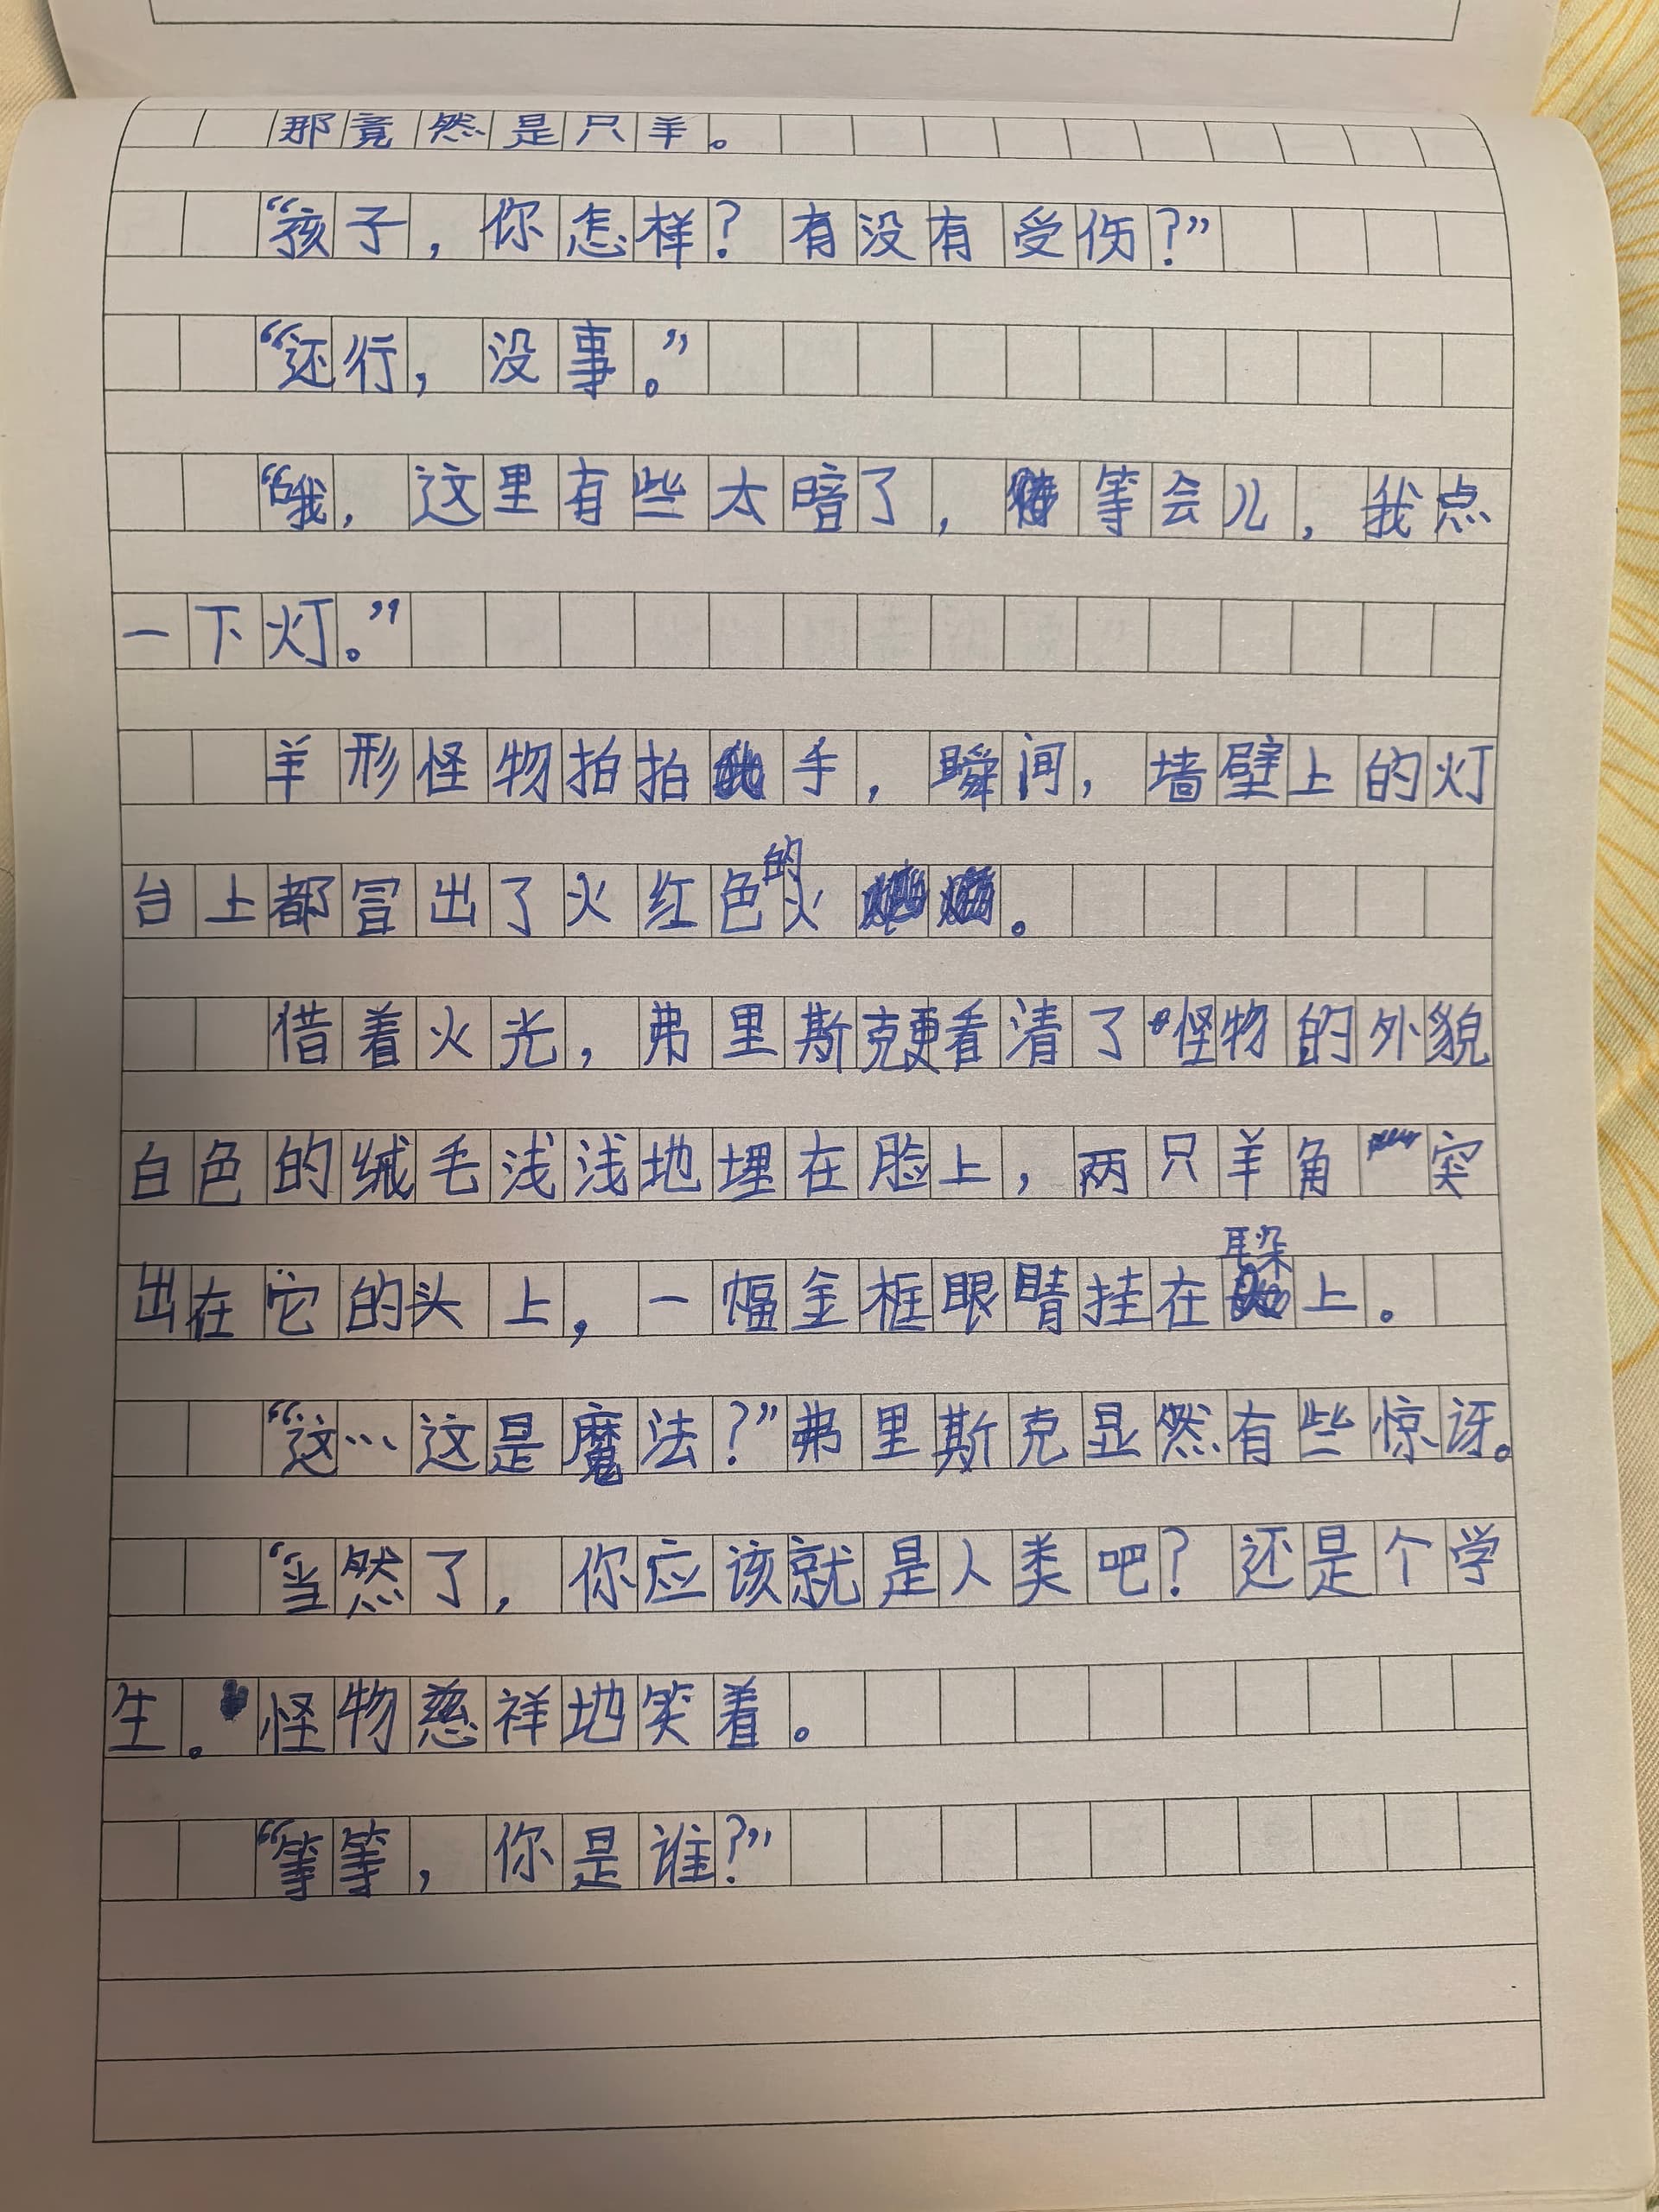 那竟然是只羊。
“孩子，你怎样？有没有受伤？”
“还行，没事。”
“哦，这里有些太暗了，等会儿，我点
一下灯。”
羊形怪物拍拍手，瞬间，墙壁上的灯
台上都冒出了火红色的火。
借着火光，弗里斯克更看清了怪物的外貌
白色的绒毛浅浅地埋在脸上，两只羊角突
出在它的头上，一幅金框眼睛挂在耳朵上。
“这…这是魔法？”弗里斯克显然有些惊讶。
“当然了，你应该就是人类吧？还是个学
生。怪物慈祥地笑着。
“等等，你是谁？”